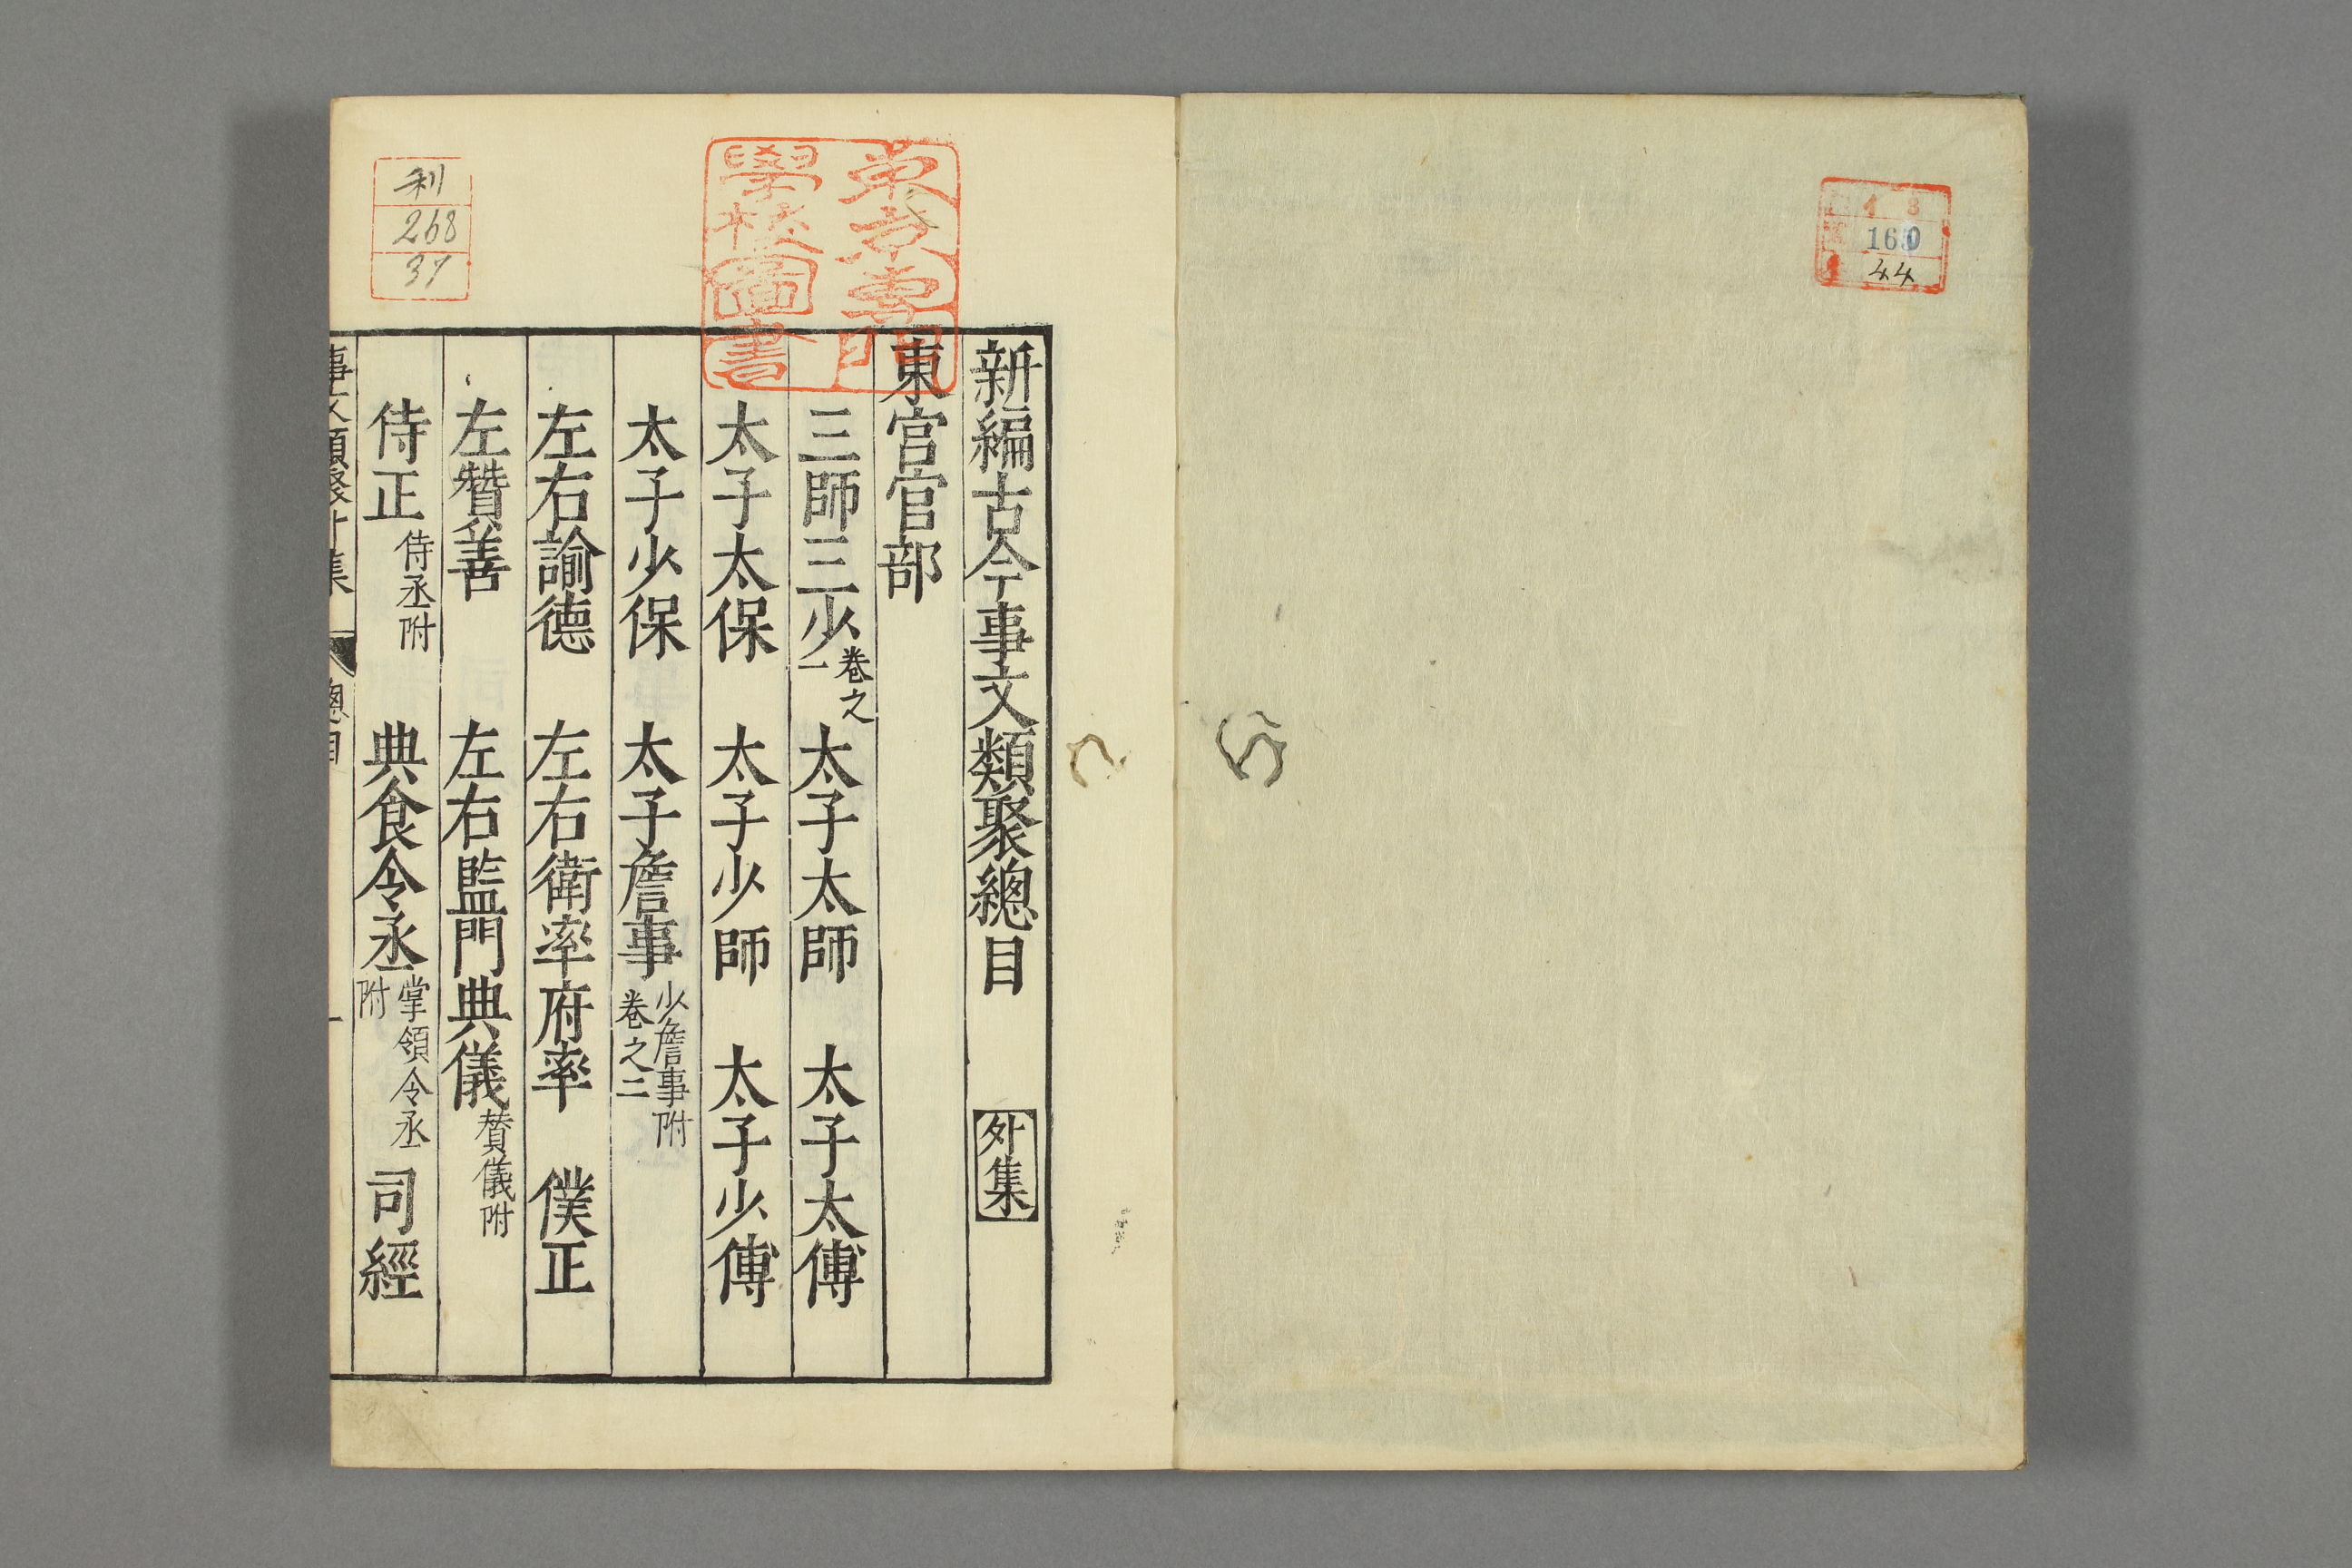 1 8
1650
44
新編古今事文類聚總目 外集
東宮官部
三師三少 卷之一 太子太師 太子太傅
太子太保 太子少師 太子少傅
太子少保 太子詹事 少詹事附 卷之二
左右諭德 左右衛率府率 僕正
左贊善 左右監門典儀 贊儀附
侍正 侍丞附 典食令丞 掌領令丞附 司經
事文類聚外集 總目 一
東京專門學校圖書
利
268
37